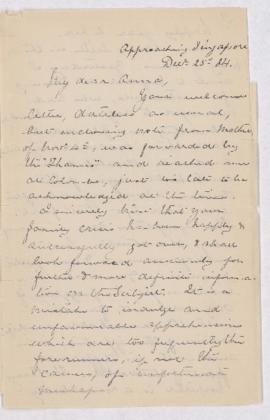 Approaching Singapore
Decr. 25th 84.
My dear Anna,
Your welcome
letter, dateless as usual,
but enclosing note from Mother,
of Novr 4th, was forwarded by
the "Thames" and reached me
at Colombo, just too late to be
acknowledged at the time.
I sincerely trust that your
family crisis has been happily &
successfully got over, & shall
look forward anxiously for
further & more definite informa-
tion on the subject. It is a
mistake to indulge and
unfavourable apprehensions
which are too frequently the
forerunners, if not the
causes, of unfortunate
mishaps